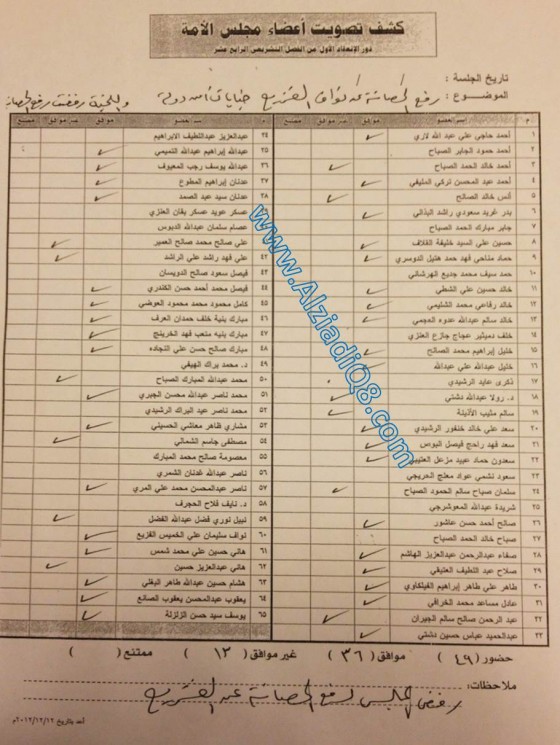 كشف تصويت أعضاء مجلس الأمة
دور الإنعقاد الأول من الفصل التشريعي الرابع عشر
تاريخ الجلسة :
الموضوع : رفع الحصانة عن نواف الفزيع جنايات أمن دولة
م اسم العضو موافق غير موافق ممتنع
١ أحمد حاجي علي عبد الله لاري
٢ أحمد حمود الجابر الصباح
٣ أحمد خالد الحمد الصباح
٤ أحمد عبد المحسن تركي المليفي
٥ أنس خالد الصالح
٦ بدر غريد سعودي راشد البذالي
٧ جابر مبارك الحمد الصباح
٨ حسين علي السيد خليفة القلاف
٩ حماد مناحي فهد حمد هتيل الدوسري
١٠ حمد سيف محمد جديع الهرشاني
١١ خالد حسين علي الشطي
١٢ خالد رفاعي محمد الشليمي
١٣ خالد سالم عبدالله عدوه العجمي
١٤ خلف دميثير عجاج جازع العنزي
١٥ خليل إبراهيم محمد الصالح
١٦ خليل عبدالله علي عبدالله
١٧ ذكرى عايد الرشيدي
١٨ د. رولا عبدالله دشتي
١٩ سالم مثيب الأذينة
٢٠ سعد علي خالد خنفور الرشيدي
٢١ سعد فهد راجح فيصل البوص
٢٢ سعدون حماد عبيد مزعل العتيبي
٢٣ سعود نشمي عواد معلج الحريجي
٢٤ سلمان صباح سالم الحمود الصباح
٢٥ شريدة عبدالله المعوشرجي
٢٦ صالح أحمد حسن عاشور
٢٧ صباح خالد الحمد الصباح
٢٨ صفاء عبدالرحمن عبدالعزيز الهاشم
٢٩ صلاح عبد اللطيف العتيقي
٣٠ طاهر علي طاهر إبراهيم الفيلكاوي
٣١ عادل مساعد محمد الخرافي
٣٢ عبد الرحمن صالح سالم الجيران
٣٣ عبدالحميد عباس حسين دشتي
م اسم العضو موافق غير موافق ممتنع
٣٤ عبدالعزيز عبداللطيف الابراهيم
٣٥ عبدالله إبراهيم عبدالله التميمي
٣٦ عبدالله يوسف رجب المعيوف
٣٧ عدنان إبراهيم المطوع
٣٨ عدنان سيد عبد الصمد
عسكر عويد عسكر بفان العنزي
عصام سلمان عبدالله الدبوس
علي صالح محمد صالح العمير
٤٢ علي فهد راشد علي الراشد
٤٣ فيصل سعود صالح الدويسان
٤٤ فيصل محمد أحمد حسن الكندري
٤٥ كامل محمود محمد محمود العوضي
٤٦ مبارك بنيه خلف حمدان العرف
٤٧ مبارك بنيه متعب فهد الخرينج
٤٨ مبارك صالح حسن علي النجاده
٤٩ د. محمد براك الهيفي
٥٠ محمد عبدالله المبارك الصباح
٥١ محمد ناصر عبدالله محسن الجبري
٥٢ محمد ناصر عبد البراك الرشيدي
٥٣ مشاري ظاهر معاشي الحسيني
٥٤ مصطفى جاسم الشمالي
٥٥ معصومة صالح محمد المبارك
٥٦ ناصر عبدالله غدنان الشمري
٥٧ ناصر عبدالمحسن محمد علي المري
٥٨ د. نايف فلاح الحجرف
٥٩ نبيل نوري فضل عبدالله الفضل
٦٠ نواف سليمان علي الخميس الفزيع
٦١ هاني حسين علي محمد شمس
٦٢ هاني عبدالعزيز حسين
٦٣ هشام حسين عبدالله طاهر البغلي
٦٤ يعقوب عبدالمحسن يعقوب الصانع
٦٥ يوسف سيد حسن الزلزلة
حضور ( ٤٩ ) موافق ( ٣٦ ) غير موافق ( ١٣ ) ممتنع ( )
ملاحظات: رفض المجلس لرفع الحصانة عن الفزيع
أعد بتاريخ ٢٠١٢/١٢/١٢م
www.AlziadiQ8.com